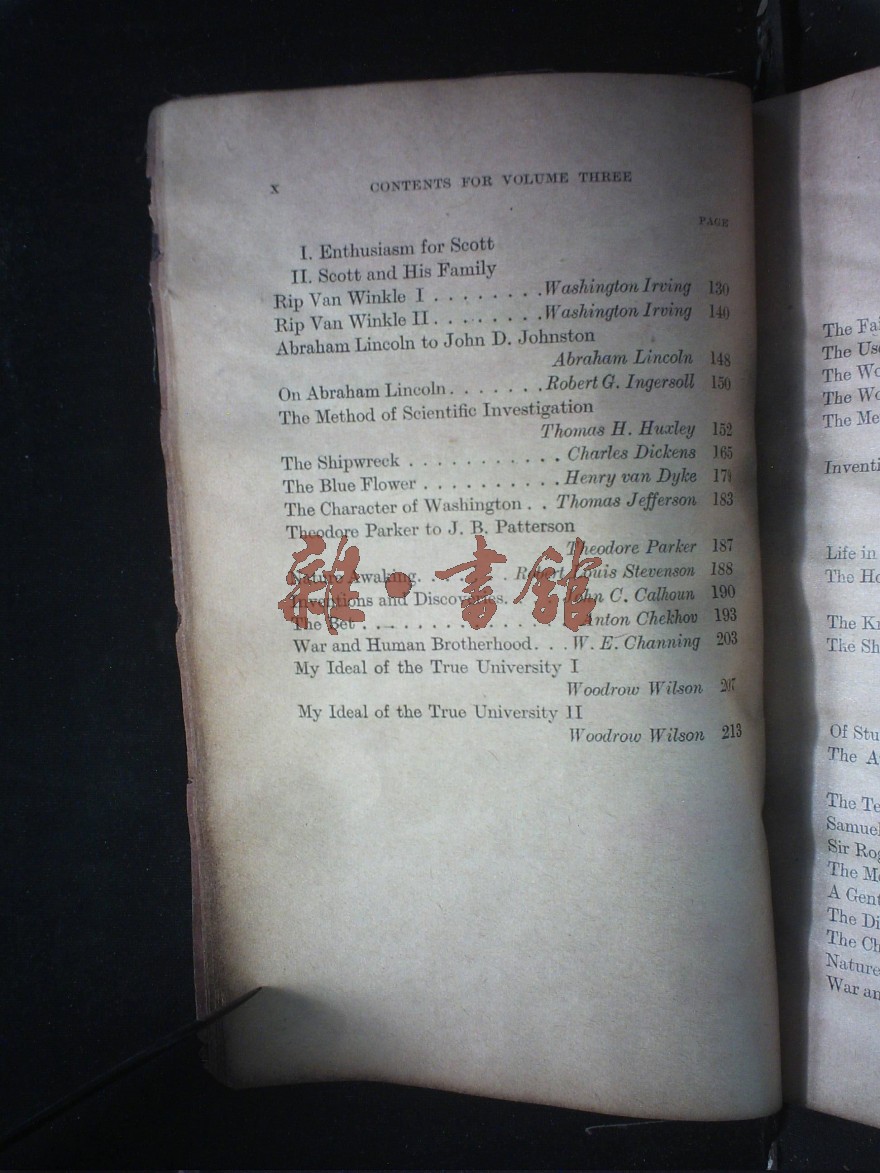 x CONTENTS FOR VOLUME THREE
PAGE
I. Enthusiasm for Scott
II. Scott and His Family
Rip Van Winkle I . . . . . . . . Washington Irving 130
Rip Van Winkle II . . . . . . . . Washington Irving 140
Abraham Lincoln to John D. Johnston
Abraham Lincoln 148
On Abraham Lincoln . . . . . . . Robert G. Ingersoll 150
The Method of Scientific Investigation
Thomas H. Huxley 152
The Shipwreck . . . . . . . . . . . Charles Dickens 165
The Blue Flower . . . . . . . . . . Henry van Dyke
The Character of Washington . . Thomas Jefferson 183
Theodore Parker to J. B. Patterson
Theodore Parker 187
Nature Awaking . . . . . . Robert Louis Stevenson 188
Inventions and Discoveries . . . John C. Calhoun 190
The Bet . . . . . . . . . . . . . Anton Chekhov 193
War and Human Brotherhood . . . W. E. Channing 203
My Ideal of the True University I
Woodrow Wilson 207
My Ideal of the True University II
Woodrow Wilson 213
雜·書館
The
The
The
The
The
Life in
The
The
The
Of
The
The
Sir
The
A
The
The
Nature
War